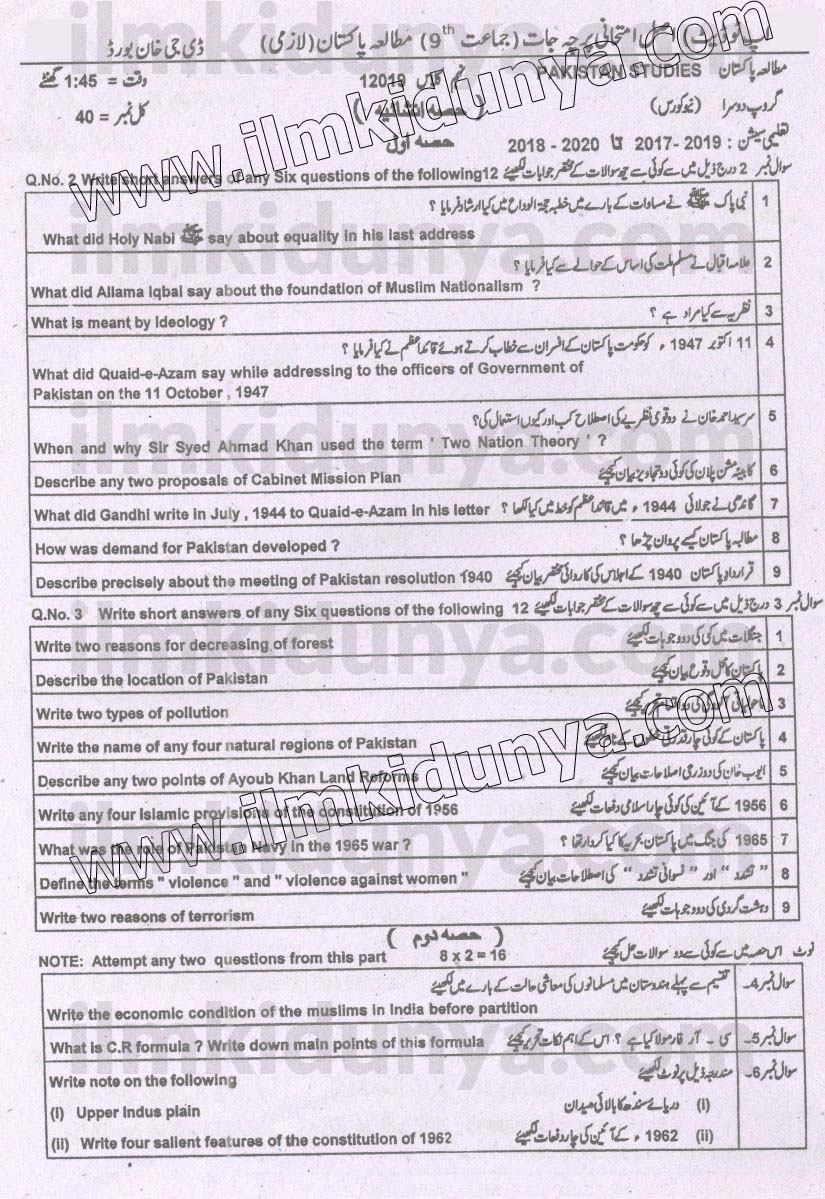 اصلی امتحانی پرچہ جات (جماعت 9th) مطالعہ پاکستان (لازمی) ڈی جی خان بورڈ
مطالعہ پاکستان PAKISTAN STUDIES 12019 وقت = 1:45 گھنٹے
گروپ دوسرا (نیو کورس) (حصہ انشائیہ) کل نمبر = 40
تعلیمی سیشن : 2019-2017 تا 2020 - 2018 حصہ اول
Q.No. 2 Write short answers of any Six questions of the following 12 سوال نمبر 2 درج ذیل میں سے کوئی سے چھ سوالات کے مختصر جوابات لکھیئے
1 نبی پاک ﷺ نے مساوات کے بارے میں خطبہ حجۃ الوداع میں کیا ارشاد فرمایا ؟
What did Holy Nabi ﷺ say about equality in his last address
2 علامہ اقبال نے مسلم ملت کی اساس کے حوالے سے کیا فرمایا ؟
What did Allama Iqbal say about the foundation of Muslim Nationalism ?
What is meant by Ideology ? نظریہ سے کیا مراد ہے ؟ 3
4 11 اکتوبر 1947 ء کو حکومت پاکستان کے افسران سے خطاب کرتے ہوئے قائداعظم نے کیا فرمایا ؟
What did Quaid-e-Azam say while addressing to the officers of Government of
Pakistan on the 11 October , 1947
5 سرسید احمد خان نے دو قومی نظریے کی اصطلاح کب اور کیوں استعمال کی؟
When and why Sir Syed Ahmad Khan used the term ' Two Nation Theory ' ?
Describe any two proposals of Cabinet Mission Plan کابینہ مشن پلان کی کوئی دو تجاویز بیان کیجیئے 6
What did Gandhi write in July , 1944 to Quaid-e-Azam in his letter گاندھی نے جولائی 1944 ء میں قائداعظم کو خط میں کیا لکھا ؟ 7
How was demand for Pakistan developed ? مطالبہ پاکستان کیسے پروان چڑھا ؟ 8
Describe precisely about the meeting of Pakistan resolution 1940 قرارداد پاکستان 1940 کے اجلاس کی کاروائی مختصر بیان کیجیئے 9
Q.No. 3 Write short answers of any Six questions of the following 12 سوال نمبر 3 درج ذیل میں سے کوئی سے چھ سوالات کے مختصر جوابات لکھیئے
Write two reasons for decreasing of forest جنگلات میں کمی کی دو وجوہات لکھیئے 1
Describe the location of Pakistan پاکستان کا محل وقوع بیان کیجیئے 2
Write two types of pollution 3
Write the name of any four natural regions of Pakistan پاکستان کے کوئی چار قدرتی 4
Describe any two points of Ayoub Khan Land Reforms ایوب خان کی دو زرعی اصلاحات بیان کیجیئے 5
Write any four Islamic provisions of the constitution of 1956 1956 کے آئین کی کوئی چار اسلامی دفعات لکھیئے 6
What was the role of Pakistan Navy in the 1965 war ? 1965 کی جنگ میں پاکستان بحریہ کا کیا کردار تھا ؟ 7
Define the terms " violence " and " violence against women " " تشدد " اور " نسوانی تشدد " کی اصطلاحات بیان کیجیئے 8
Write two reasons of terrorism دہشت گردی کی دو وجوہات لکھیئے 9
( حصہ دوم )
NOTE: Attempt any two questions from this part 8 x 2 = 16 نوٹ اس حصہ میں سے کوئی سے دو سوالات حل کیجیئے
سوال نمبر 4۔ تقسیم سے پہلے ہندوستان میں مسلمانوں کی معاشی حالت کے بارے میں لکھیئے
Write the economic condition of the muslims in India before partition
What is C.R formula ? Write down main points of this formula سی - آر فارمولا کیا ہے ؟ اس کے اہم نکات تحریر کیجیئے سوال نمبر 5۔
Write note on the following مندرجہ ذیل پر نوٹ لکھیئے سوال نمبر 6۔
(i) Upper Indus plain دریائے سندھ کا بالائی میدان (i)
(ii) Write four salient features of the constitution of 1962 1962 ء کے آئین کی چار دفعات لکھیئے (ii)
www.ilmkidunya.com
www.ilmkidunya.com
ilmkidunya.com
ilmkidunya.com
ilmkidunya.com
ilmkidunya.com
ilmkidunya.com
ilmkidunya.com